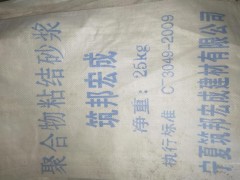 聚合物粘结砂浆
筑邦宏成
净重：25kg
执行标准 C 3049-2009
宁夏筑邦宏成建材有限公司